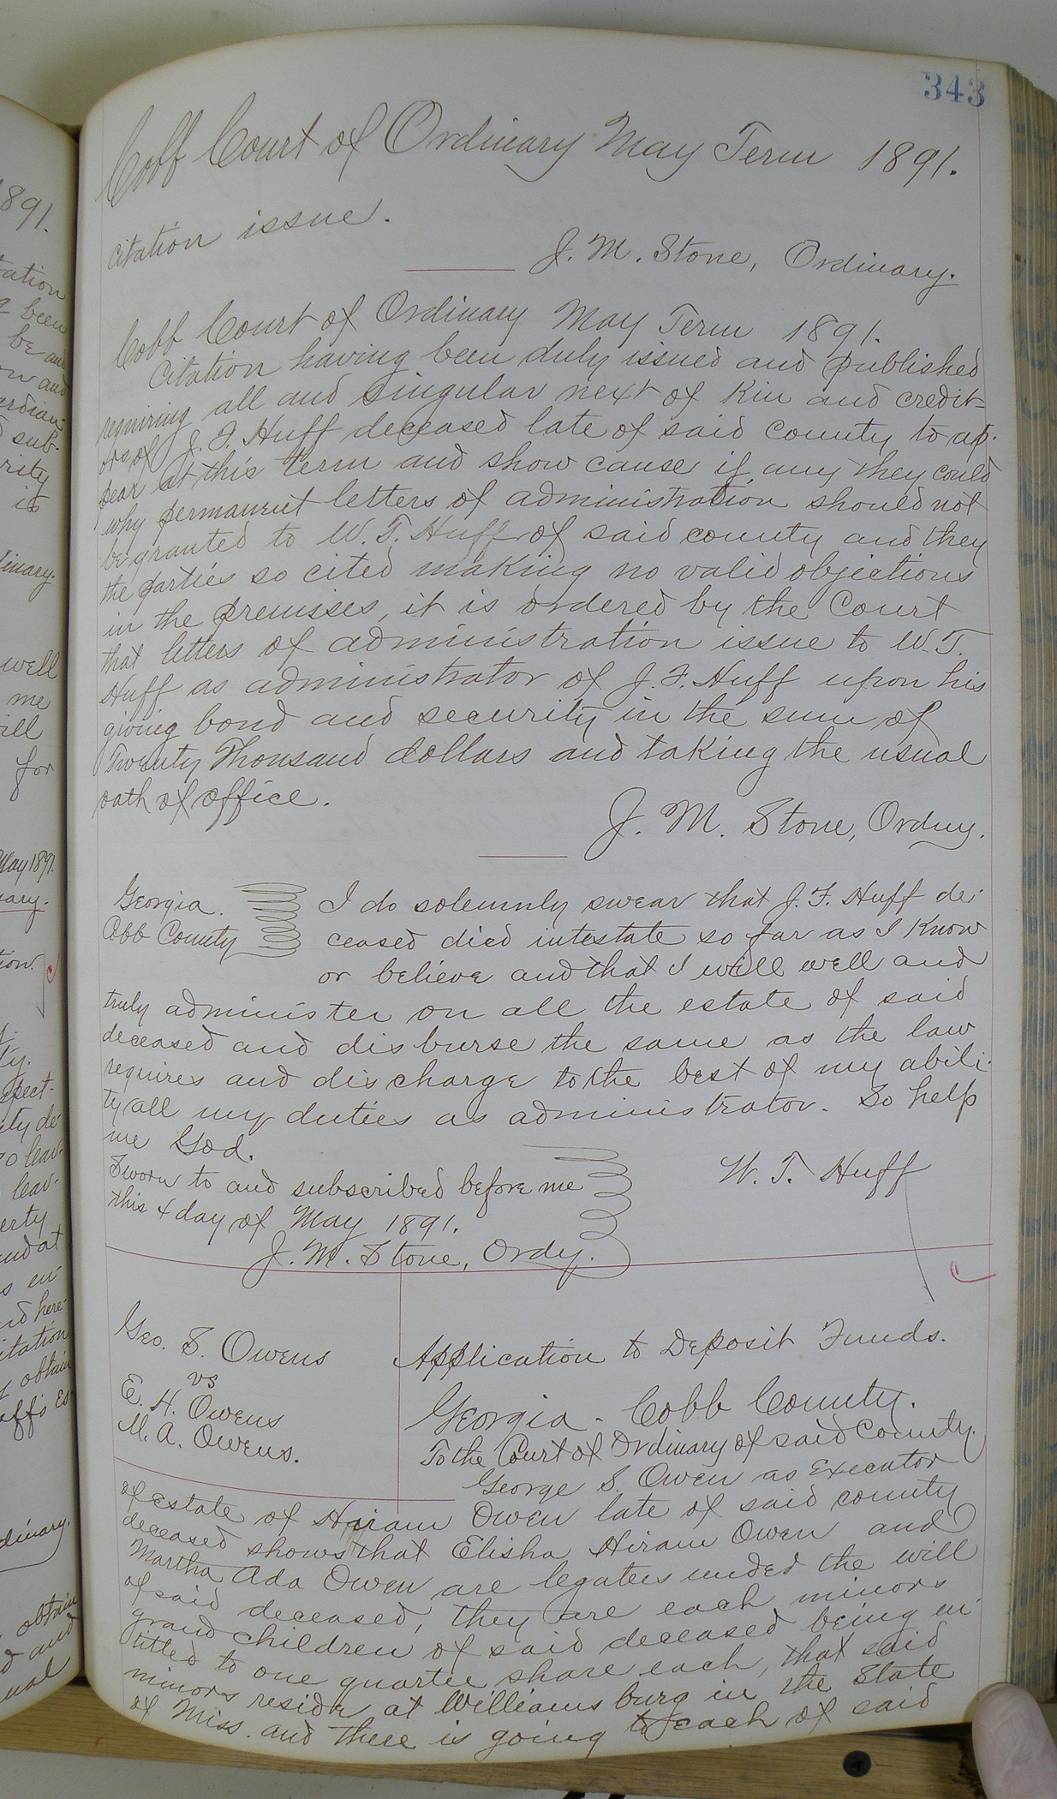 343
Cobb Court of Ordinary May Term 1891.
citation issue.
J. M. Stone, Ordinary.
Cobb Court of Ordinary May Term 1891.
Citation having been duly issued and published
requiring all and Singular next of Kin and credit=
ors of J. F. Huff deceased late of said county to ap-
pear at this term and show cause if any they could
why permanent letters of administration should not
be granted to W. T. Huff of said county and they
the parties so cited making no valid objections
in the premises, it is ordered by the Court
that letters of administration issue to W. T.
Huff as administrator of J. F. Huff upon his
giving bond and security in the sum of
Twenty Thousand dollars and taking the usual
oath of office.
J. M. Stone, Ordny.
Georgia.
Cobb County
I do solemnly swear that J. F. Huff de-
ceased died intestate so far as I Know
or believe and that I will well and
truly administer on all the estate of said
deceased and disburse the same as the law
requires and discharge to the best of my abili-
ty all my duties as administrator. So help
me God.
Sworn to and subscribed before me
this 4 day of May 1891.
J. M. Stone, Ordy.
W. T. Huff
Geo. S. Owens
vs
E. H. Owens
M. A. Owens.
Application to Deposit Funds.
Georgia - Cobb County.
To the Court of Ordinary of said County.
George S. Owen as Executor
of Estate of Hiram Owen late of said county
deceased shows that Elisha Hiram Owen and
Martha Ada Owen are legatees under the will
of said deceased, they are each minors
grand children of said deceased being en-
titled to one quarter share each, that said
minors reside at Williamsburg in the State
of Miss. and there is going to each of said
1891.
tation
been
be
and
sub-
rity
is
dinary.
well
me
will
for
May 1891.
erty
obtain
dinary.
obtain
and